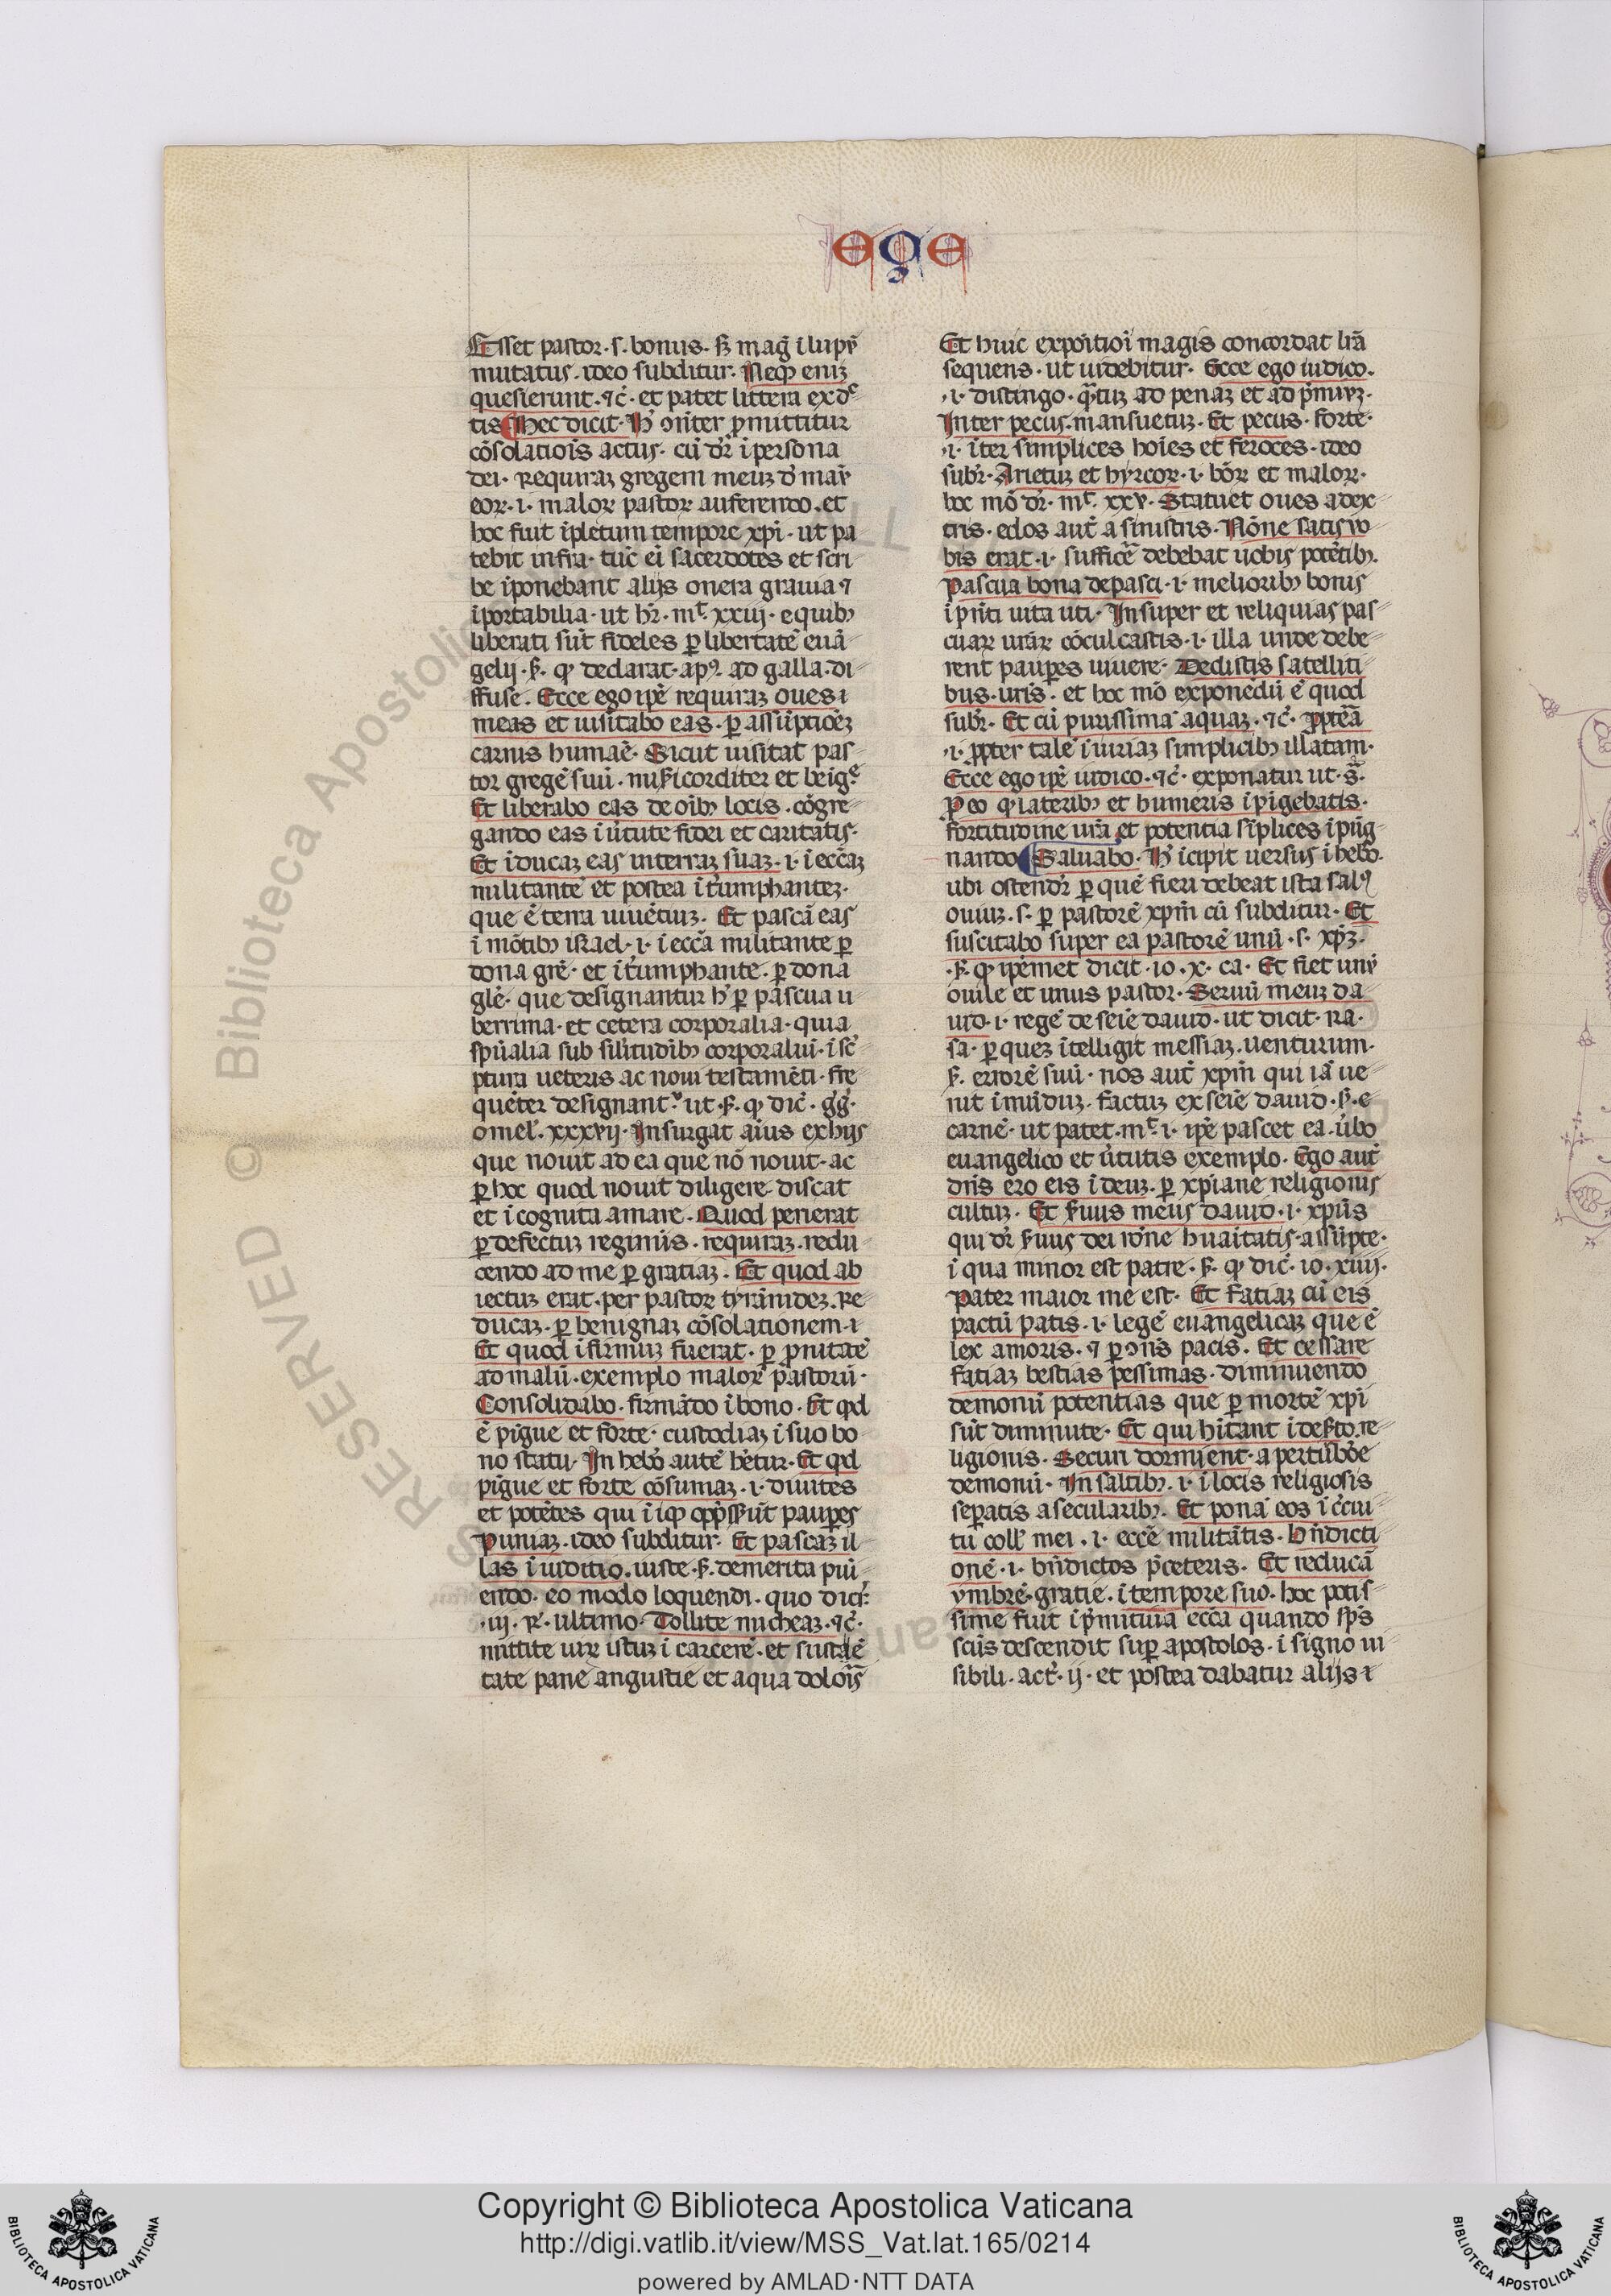 ege
Esset pastor·s·bonus· ꝫ mag̃ i lupꝰ
mutatus·ideo subditur· Neqꝫ enim
quesierunt·⁊c̃· et patet littera ex dc̃
tis Hec dicit· H̾ ↄniter p̾mittitur
cōsolatiois actus· cū dr̃ i persona
dei· Requiram gregem meum d̾ manꝰ
eoꝝ·i· maloꝝ pastoꝝ auferendo·et
hoc fuit ipletum tempore xp̄i· ut pa
tebit infra· tūc ei sacerdotes et scri
be iponebant alijs onera grauia ⁊
iportabilia· ut hr̃· mᵗ xxiij· e quibꝫ
liberati sūt fideles ꝑ libertatē euā
gelij·ẜ· qꝫ declarat·apꝰ· ad galla·di
ffuse· Ecce ego ip̄e requiram oues
meas et uisitabo eas· ꝑ assūptioēm
carnis humāe· Sicut uisitat pas
tor gregē suū· mis̃icorditer et beigͤ
Et liberabo eas de oībꝫ locis· cōgre
gando eas i ũtute fidei et caritatis·
Et iducam eas in terram suam·i·i ecc̄am
militantē et postea it̾umphantem·
que ē terra uiuētium· Et pascā eas
i mōtibꝫ israel·i· i ecc̄a militante ꝑ
dona gr̄e· et it̾umphante· ꝑ dona
gl̄e· que designantur h̾ ꝑ pascua u
berrima· et cetera corporalia· quia
sp̄ualia sub sil̃itudībꝫ corporaliū· i sc̾
ptura ueteris ac noui testamēti· fre
quēter designantᷣ· ut·ẜ· qꝫ dic̄· g̃g̃·
omel̃· xxxvij· Insurgat aīus ex hijs
que nouit ad ea que nō nouit· ac
ꝑ hoc quod nouit diligere discat
et icognita amare· Quod perierat
ꝑ defectum regiminis· requiram· redu
cendo ad me ꝑ gratiam· Et quod ab
iectum erat· per pastoꝝ tyrānidem· Re
ducam· ꝑ benignam cōsolationem·
Et quod ifirmum fuerat· ꝑ p̃nitatē
ad malū· exemplo maloꝝ pastorū·
Consolidabo· firmādo i bono· Et qd
ē pigue et forte· custodiam i suo bo
no statu· In hebō autē h̄etur· Et qd
pigue et forte cōsumam·i· diuites
et potētes qui iiqꝫ opp̃sserūt pauꝑes
Puniam· ideo subditur· Et pascam il
las i iuditio· iuste·ẜ· demerita pūi
endo· eo modo loquendi· quo dicit̃
·iij·R̃· ultimo· Tollite micheam·⁊c̃·
mittite uiꝝ istum i carcerē· et sustēe
tate pane angustie et aqua doloris
Et huic expoitioi magis concordat lr̄a
sequens· ut uidebitur· Ecce ego iudico·
·i· distingo· q̃tum ad penam et ad p̃mium·
Inter pecus· mansuetum· Et pecus· forte·
·i· iter simplices hoīes et feroces· ideo
subr̃· Arietum et hyrcoꝝ·i· boꝝ et maloꝝ·
hoc mō dr̃· mᵗ· xxv· Statuet oues a dex
tris· edos aūt a sinistris· Nōne satis uo
bis erat·i· sufficẽ debebat uobis potētibꝫ·
Pascua bona depasci·i· melioribꝫ bonis
i p̄nti uita uti· Insuper et reliquias pas
cuaꝝ ur̄aꝝ cōculcastis·i· illa unde debe
rent pauꝑes uiuere· Dedistis satelliti
bus· uris̄· et hoc mō exponēdū ē quod
subr̃· Et cū purissimā aquam·⁊c̃· ꝓpterā
·i· ꝓpter talē iiuriam simplicibꝫ illatam·
Ecce ego ip̄e iudico·⁊c̃· exponatur ut·s̃·
Pro eo qꝫ lateribꝫ et humeris ipigebatis·
fortitudine ur̄a et potentia siplices ipūg
nando Saluabo· H̾ icipit uersus i hebō·
ubi ostendr̃ ꝑ quē fieri debeat ista salꝰ
ouium·s· ꝑ pastorē xp̄m cū subditur· Et
suscitabo super ea pastorē unū·s· xp̄m·
·ẜ· qꝫ ip̄emet dicit·io·x· ca· Et fiet unū
ouile et unus pastor· Seruū meum da
uid·i· regē de seīe dauid· ut dicit·ra·
sa· ꝑ quem itelligit messiam·uenturum·
ẜ· errorē suū· nos aūt xp̄m qui iā ue
nit i mūdum· factum ex seīe dauid·ẜ·e
carnē· ut patet·mᵗ·i· ip̄e pascet ea· ũbo
euangelico et ũtutis exemplo· Ego aūt
dn̄s ero eis i deum· ꝑ xp̄iane religionis
cultum· Et ẜuus meus dauid·i· xp̄us
qui dr̃ ẜuus dei rōne huāitatis·assūpte·
i qua minor est patre·ẜ· qꝫ dic̄· io· xiiij·
Pater maior me est· Et fatiam cū eis
pactū patis·i· legē euangelicam que ē
lex amoris·⁊ ꝑ ↄn̄s pacis· Et cessare
fatiam bestias pessimas· diminuendo
demonū potentias que ꝑ mortē xp̄i
sūt diminute· Et qui hitant i des̃to·re
ligionis· Securi dormient· a perturbōe
demonū· In saltibꝫ·i· i locis religiosis
seperatis a secularibꝫ· Et ponā eos i c̃cui
tu coll̃ mei·i· ecc̄e militātis· bn̄dicti
onē·i· bn̄dictos p̃ceteris· Et reducā
ymbrē· gratie· i tempore suo· hoc potis
sime fuit i p̃mitiua ecc̄a quando sp̄s
scūs descendit suꝑ apostolos· i signo ui
sibili· act̃·ij· et postea dabatur alijs
Copyright © Biblioteca Apostolica Vaticana
http://digi.vatlib.it/view/MSS_Vat.lat.165/0214
powered by AMLAD·NTT DATA
BIBLIOTECA APOSTOLICA VATICANA
BIBLIOTECA APOSTOLICA VATICANA